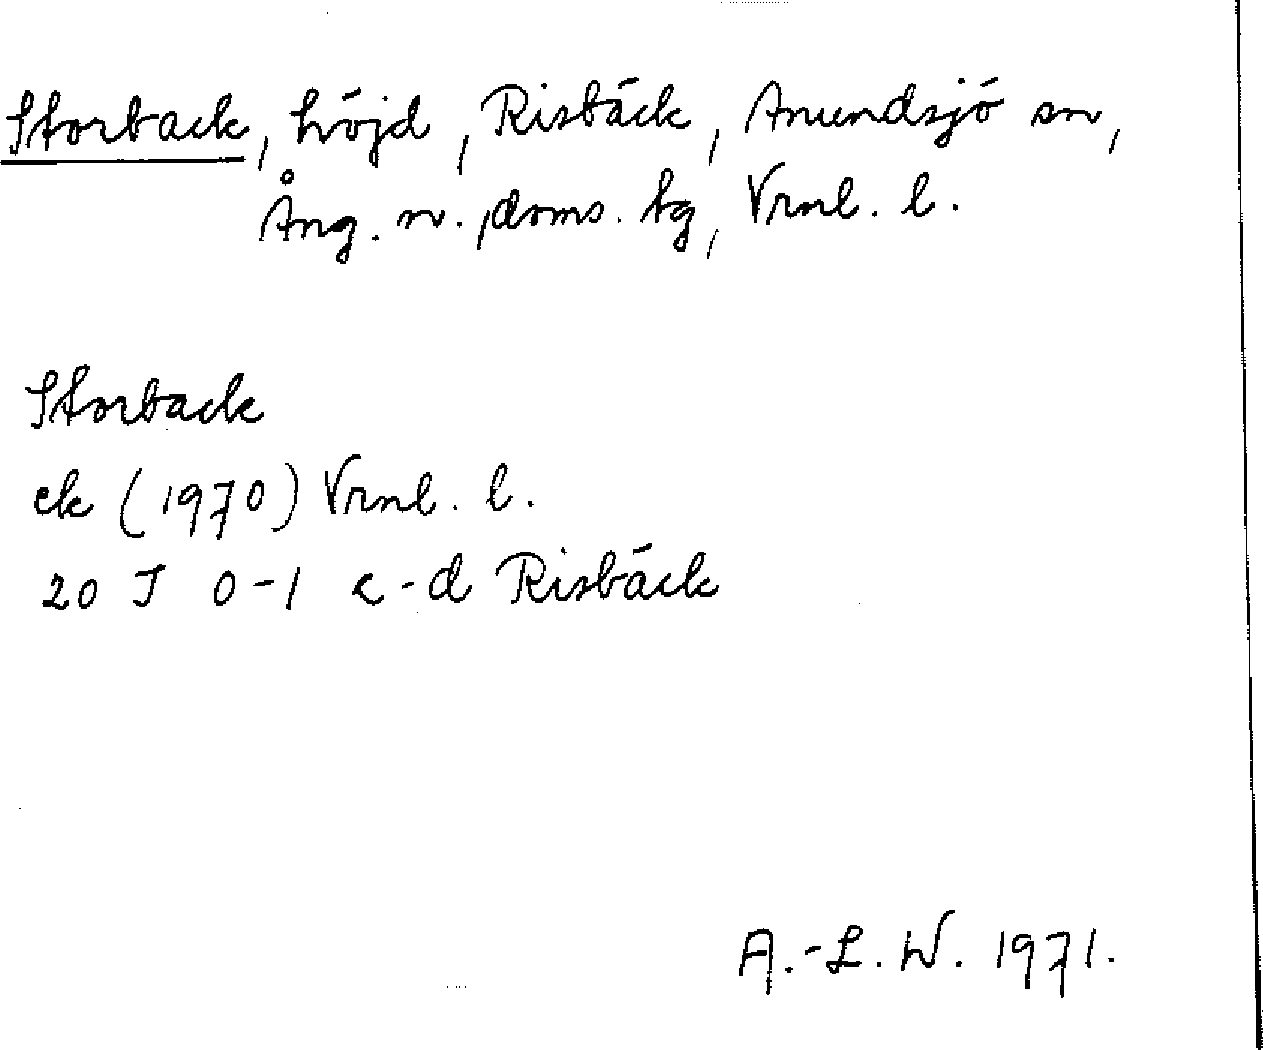 Storback, höjd, Risbäck, Anundsjö sn,
Ång. n., doms. tg, Vrnl. l.
Storback
ek (1970) Vrnl. l.
20 J 0-1 c-d Risbäck
A.-L. W. 1971.